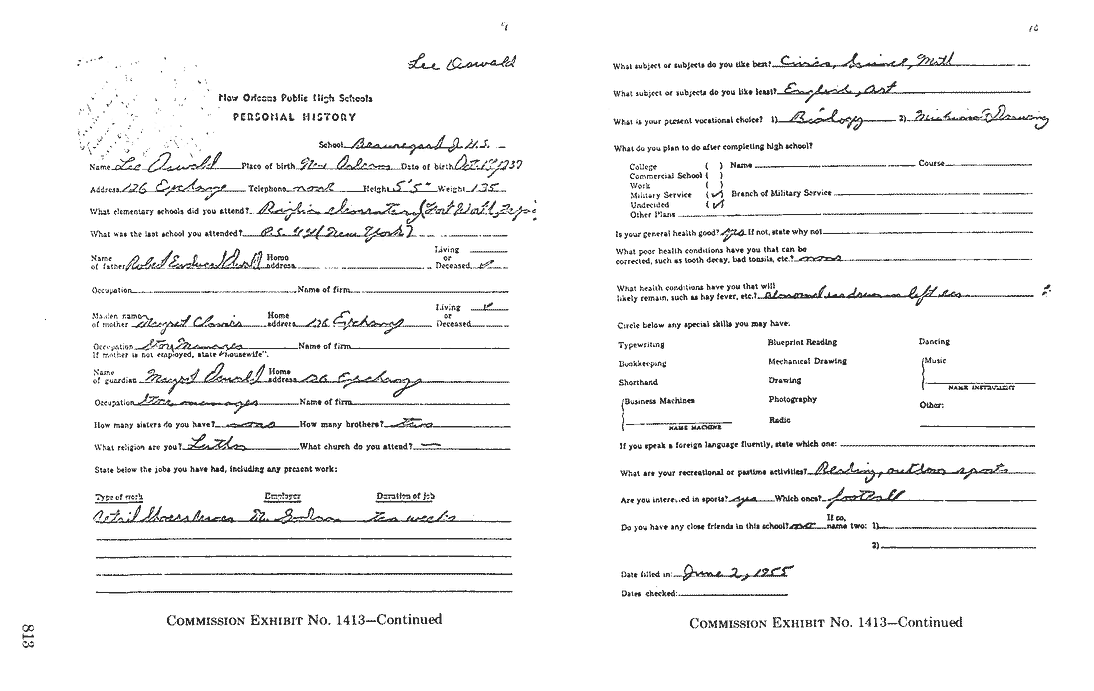 9
Lee Oswald
New Orleans Public High Schools
PERSONAL HISTORY
School Beauregard J.H.S.
Name Lee Oswald Place of birth New Orleans Date of birth Oct. 1939
Address 126 Exchange Telephone none Height 5'5" Weight 135
What elementary schools did you attend? elementary (Fort Worth,
What was the last school you attended? P.S. 44 (New York)
Name of father Robert Home address Living or Deceased ✓
Occupation Name of firm
Maiden name of mother Home address 126 Exchange Living ✓ or Deceased
Occupation Name of firm
If mother is not employed, state "housewife".
Name of guardian Oswald Home address 126 Exchange
Occupation Store Name of firm
How many sisters do you have? none How many brothers? two
What religion are you? What church do you attend? —
State below the jobs you have had, including any present work:
Type of work Employer Duration of job
ten weeks
COMMISSION EXHIBIT No. 1413—Continued
813
10
What subject or subjects do you like best? Civics, Science, Math
What subject or subjects do you like least? English, Art
What is your present vocational choice? 1) Biology 2) Drawing
What do you plan to do after completing high school?
College ( ) Name Course
Commercial School ( )
Work ( )
Military Service (✓) Branch of Military Service
Undecided (✓)
Other Plans
Is your general health good? yes If not, state why not
What poor health conditions have you that can be
corrected, such as tooth decay, bad tonsils, etc.? none
What health conditions have you that will
likely remain, such as hay fever, etc.? abnormal eardrum in left ear
Circle below any special skills you may have.
Typewriting Blueprint Reading Dancing
Bookkeeping Mechanical Drawing Music
Shorthand Drawing NAME INSTRUMENT
Business Machines Photography Other:
NAME MACHINE Radio
If you speak a foreign language fluently, state which one:
What are your recreational or pastime activities? Reading, outdoor sports
Are you interested in sports? yes Which ones? football
Do you have any close friends in this school? no If so, name two: 1)
2)
Date filled in: June 2, 1955
Dates checked:
COMMISSION EXHIBIT No. 1413—Continued